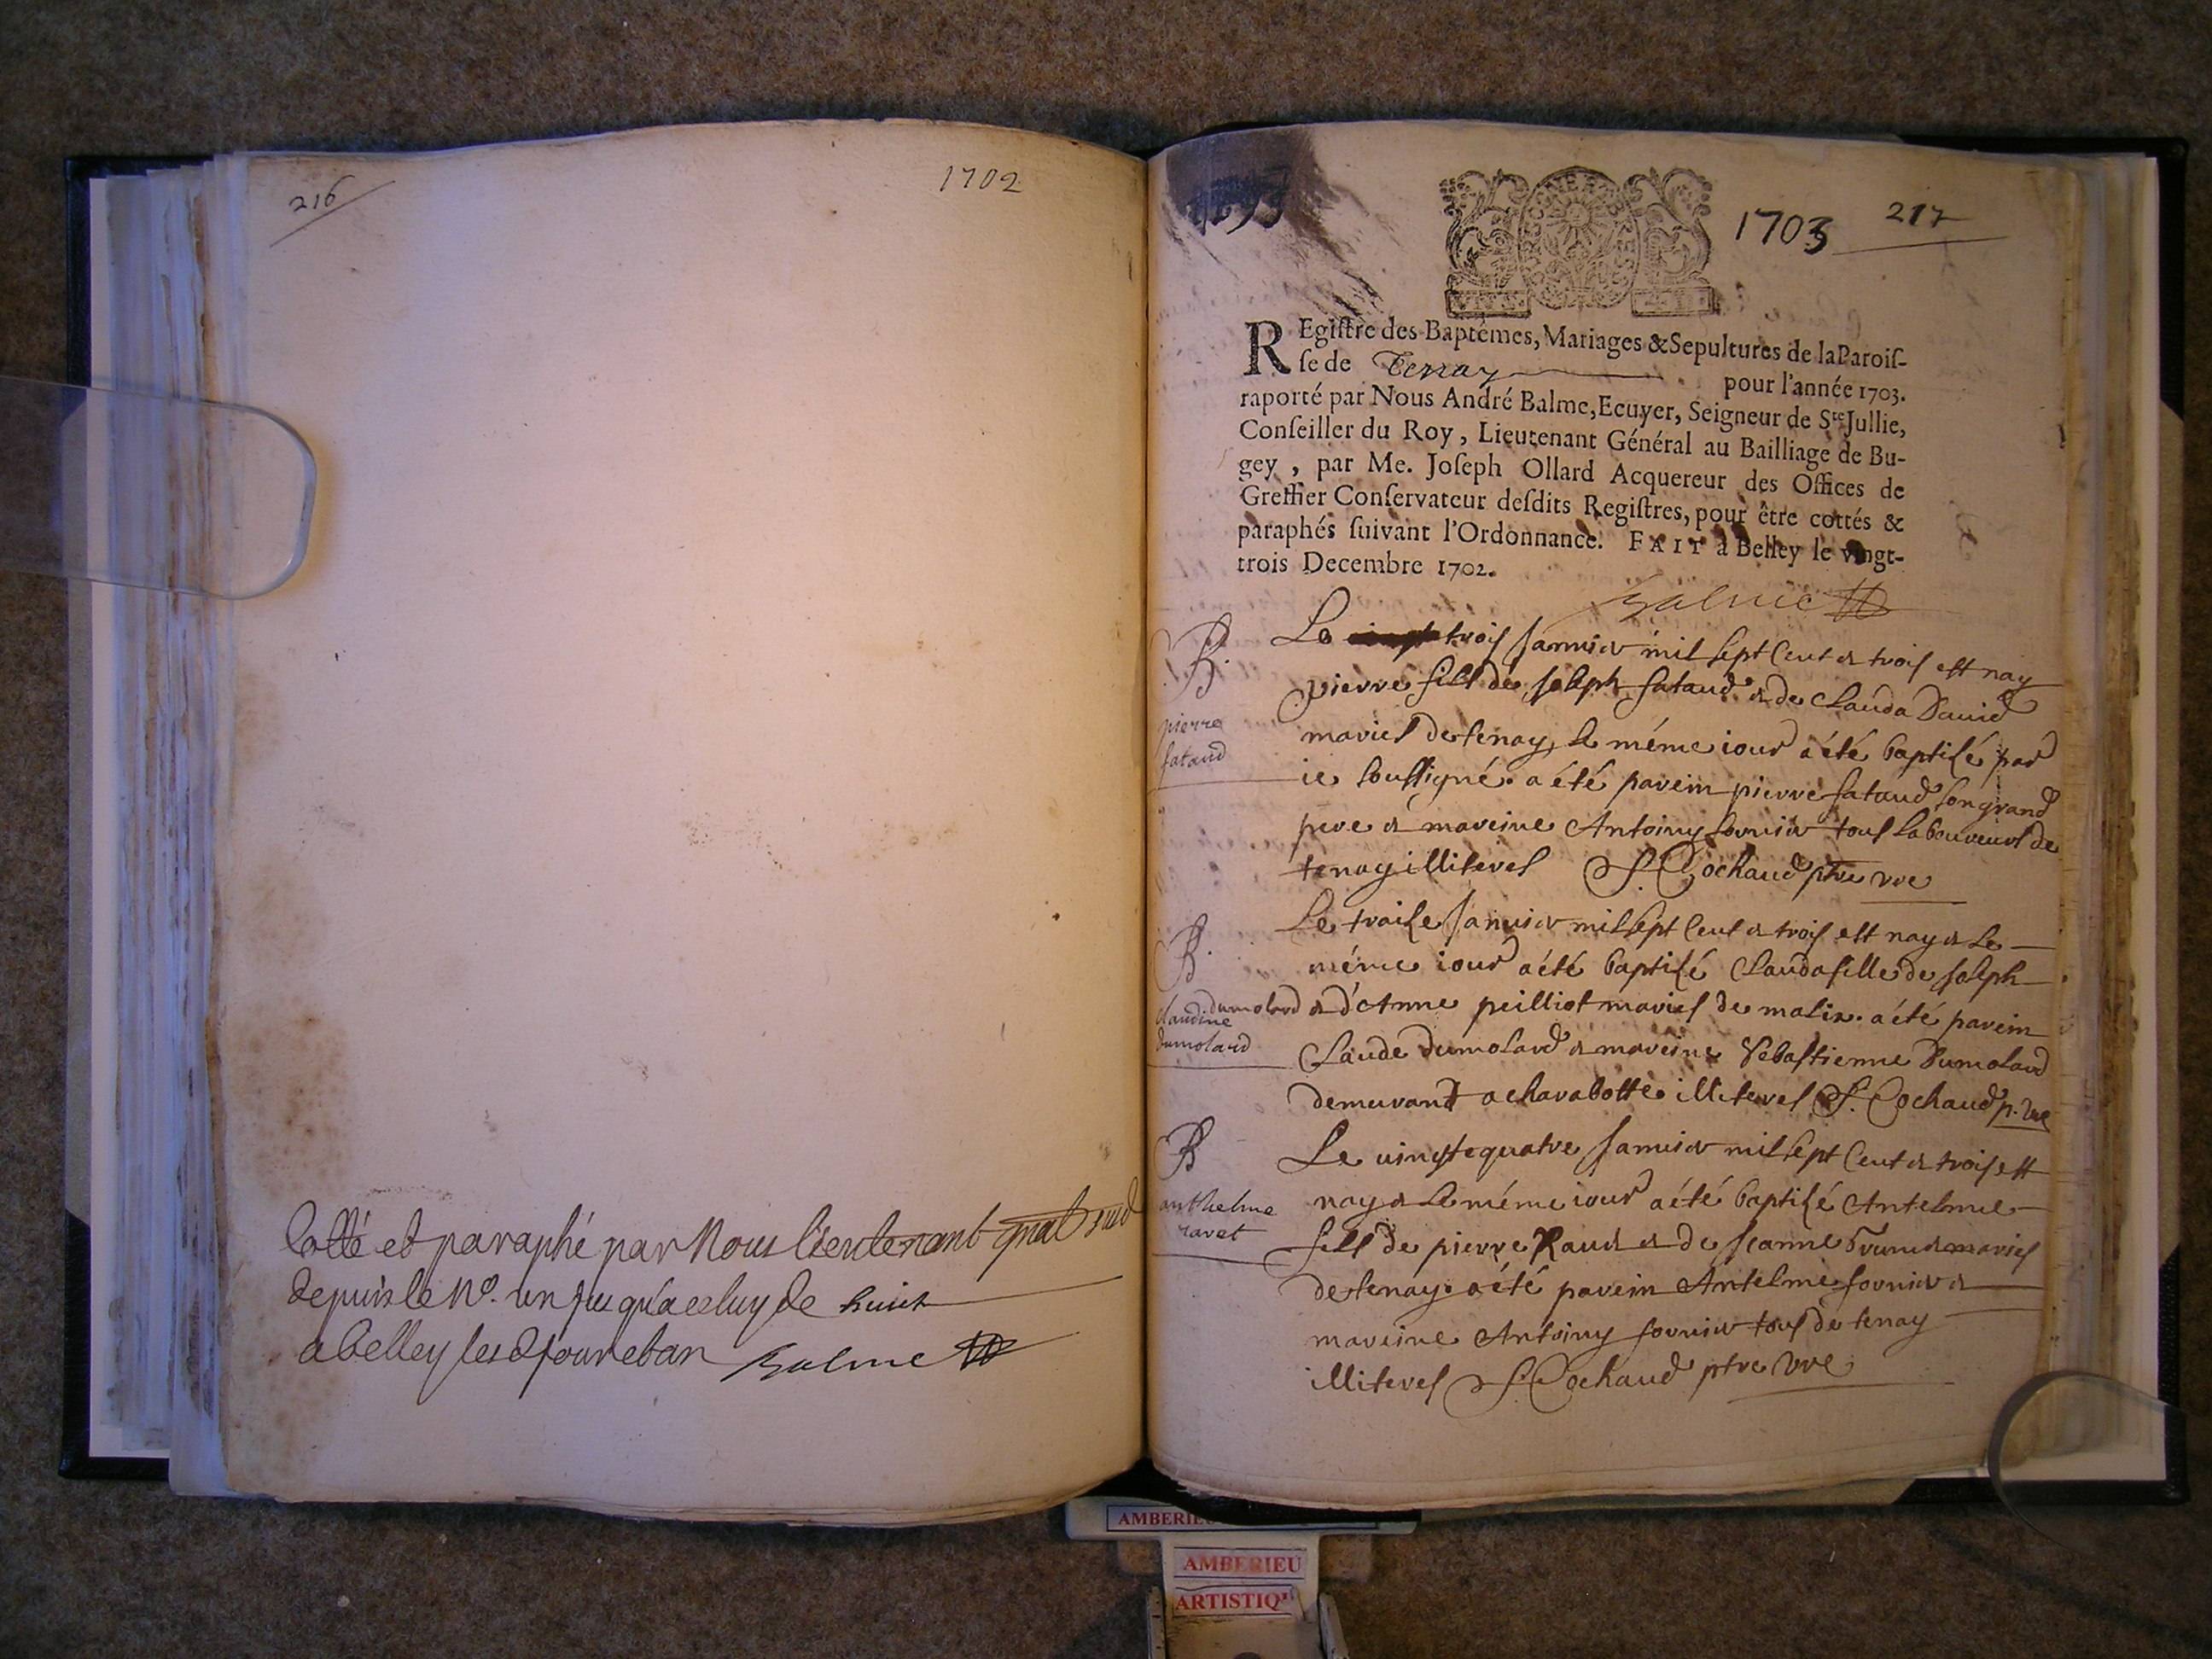 216
1702
Cotté et paraphé par Nous lieutenant gnal susd
depuis le No. un jusqu'a celuy de huict
a Belley lesd jour et an Balme
1703
1703 217
REgiſtre des Baptêmes, Mariages & Sepultures de la Paroiſ-
ſe de Tenay pour l'année 1703.
raporté par Nous André Balme, Ecuyer, Seigneur de Ste Jullie,
Conſeiller du Roy, Lieutenant Général au Bailliage de Bu-
gey, par Me. Joſeph Ollard Acquereur des Offices de
Greffier Conſervateur deſdits Regiſtres, pour être cottés &
paraphés ſuivant l'Ordonnance. FAIT à Belley le vingt-
trois Decembre 1702.
Balme
B.
pierre
fataud
Le trois Januier mil sept Cent & trois est nay
pierre fils de Joseph fataud & de Clauda Dauid
mariés de tenay, le même iour a été baptisé par
ie soussigné. a été parein pierre fataud son grand
pere & mareine Antoiny fornier tous laboureurs de
tenay illiterés S. Cochaud ptre vre
B.
Claudine
dumolard
Le traise Januier mil sept Cent & trois est nay & le
même iour a été baptisé Clauda fille de Joseph
dumolard & d'Anne peilliot mariés de malix. a été parein
Claude dumolard & mareine Sebastienne Dumolard
demeurant a charabotte illiterés S. Cochaud p. vre
B
anthelme
ravet
Le uingt quatre Januier mil sept Cent & trois est
nay & le même iour a été baptisé Antelme
fils de pierre & de Jeanne mariés
de tenay. a été parein Antelme fornier &
mareine Antoiny fornier tous de tenay
illiterés S. Cochaud ptre vre
AMBERIEU
AMBERIEU
ARTISTIQ